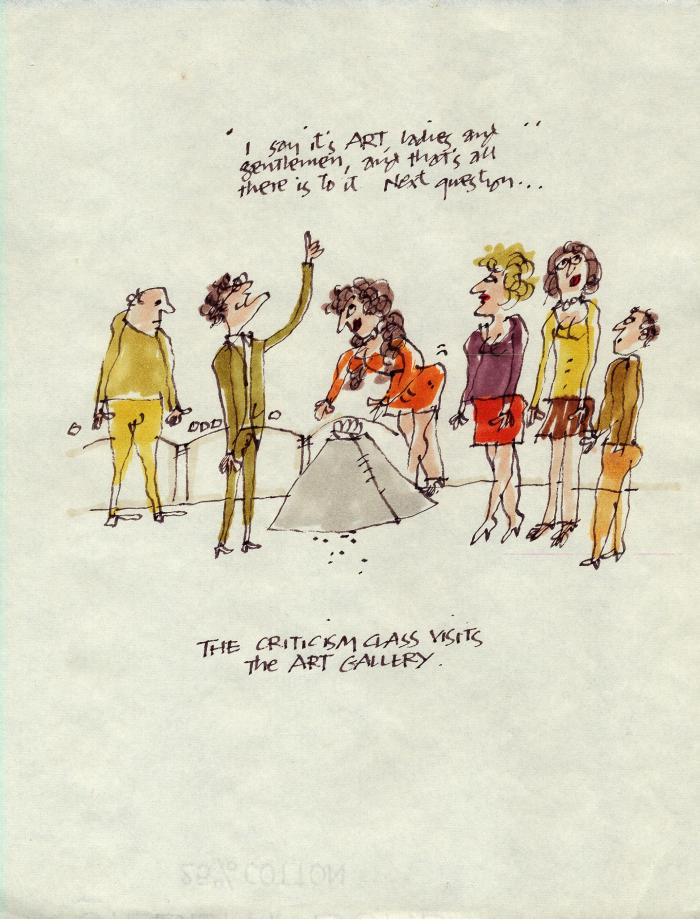 "I say it's ART, ladies and
gentlemen, and that's all
there is to it Next question..."
THE CRITICISM CLASS VISITS
the ART GALLERY.
25% COTTON